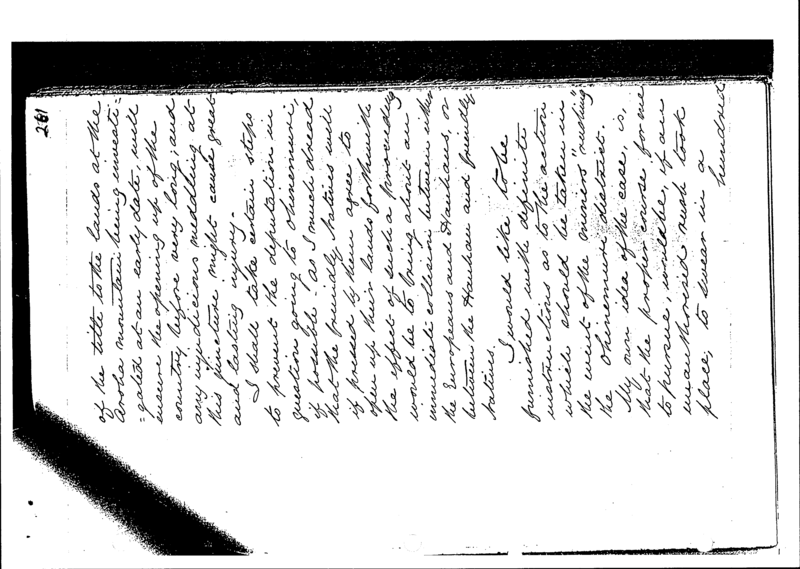 261
of the title to the lands at the
Aroha mountain being investi=
=gated at an early date, will
ensure the opening up of the
country before very long, and
any injudicious meddling at
this juncture might cause great
and lasting injury.
I shall take certain steps
to prevent the deputation in
question going to Ohinemuri,
if possible - as I much dread
that the friendly Natives will
if pressed by them agree to
open up their lands forthwith
the effect of such a proceeding
would be to bring about an
immediate collision between either
the Europeans and Hauhaus, or
between the Hauhau and friendly
Natives.
I would like to be
furnished with definite
instructions as to the action
which should be taken in
the event of the miners "rushing"
the Ohinemuri district.
My own idea of the case, is,
that the proper course for me
to pursue, would be, if an
unauthorised rush took
place, to swear in a
hundred